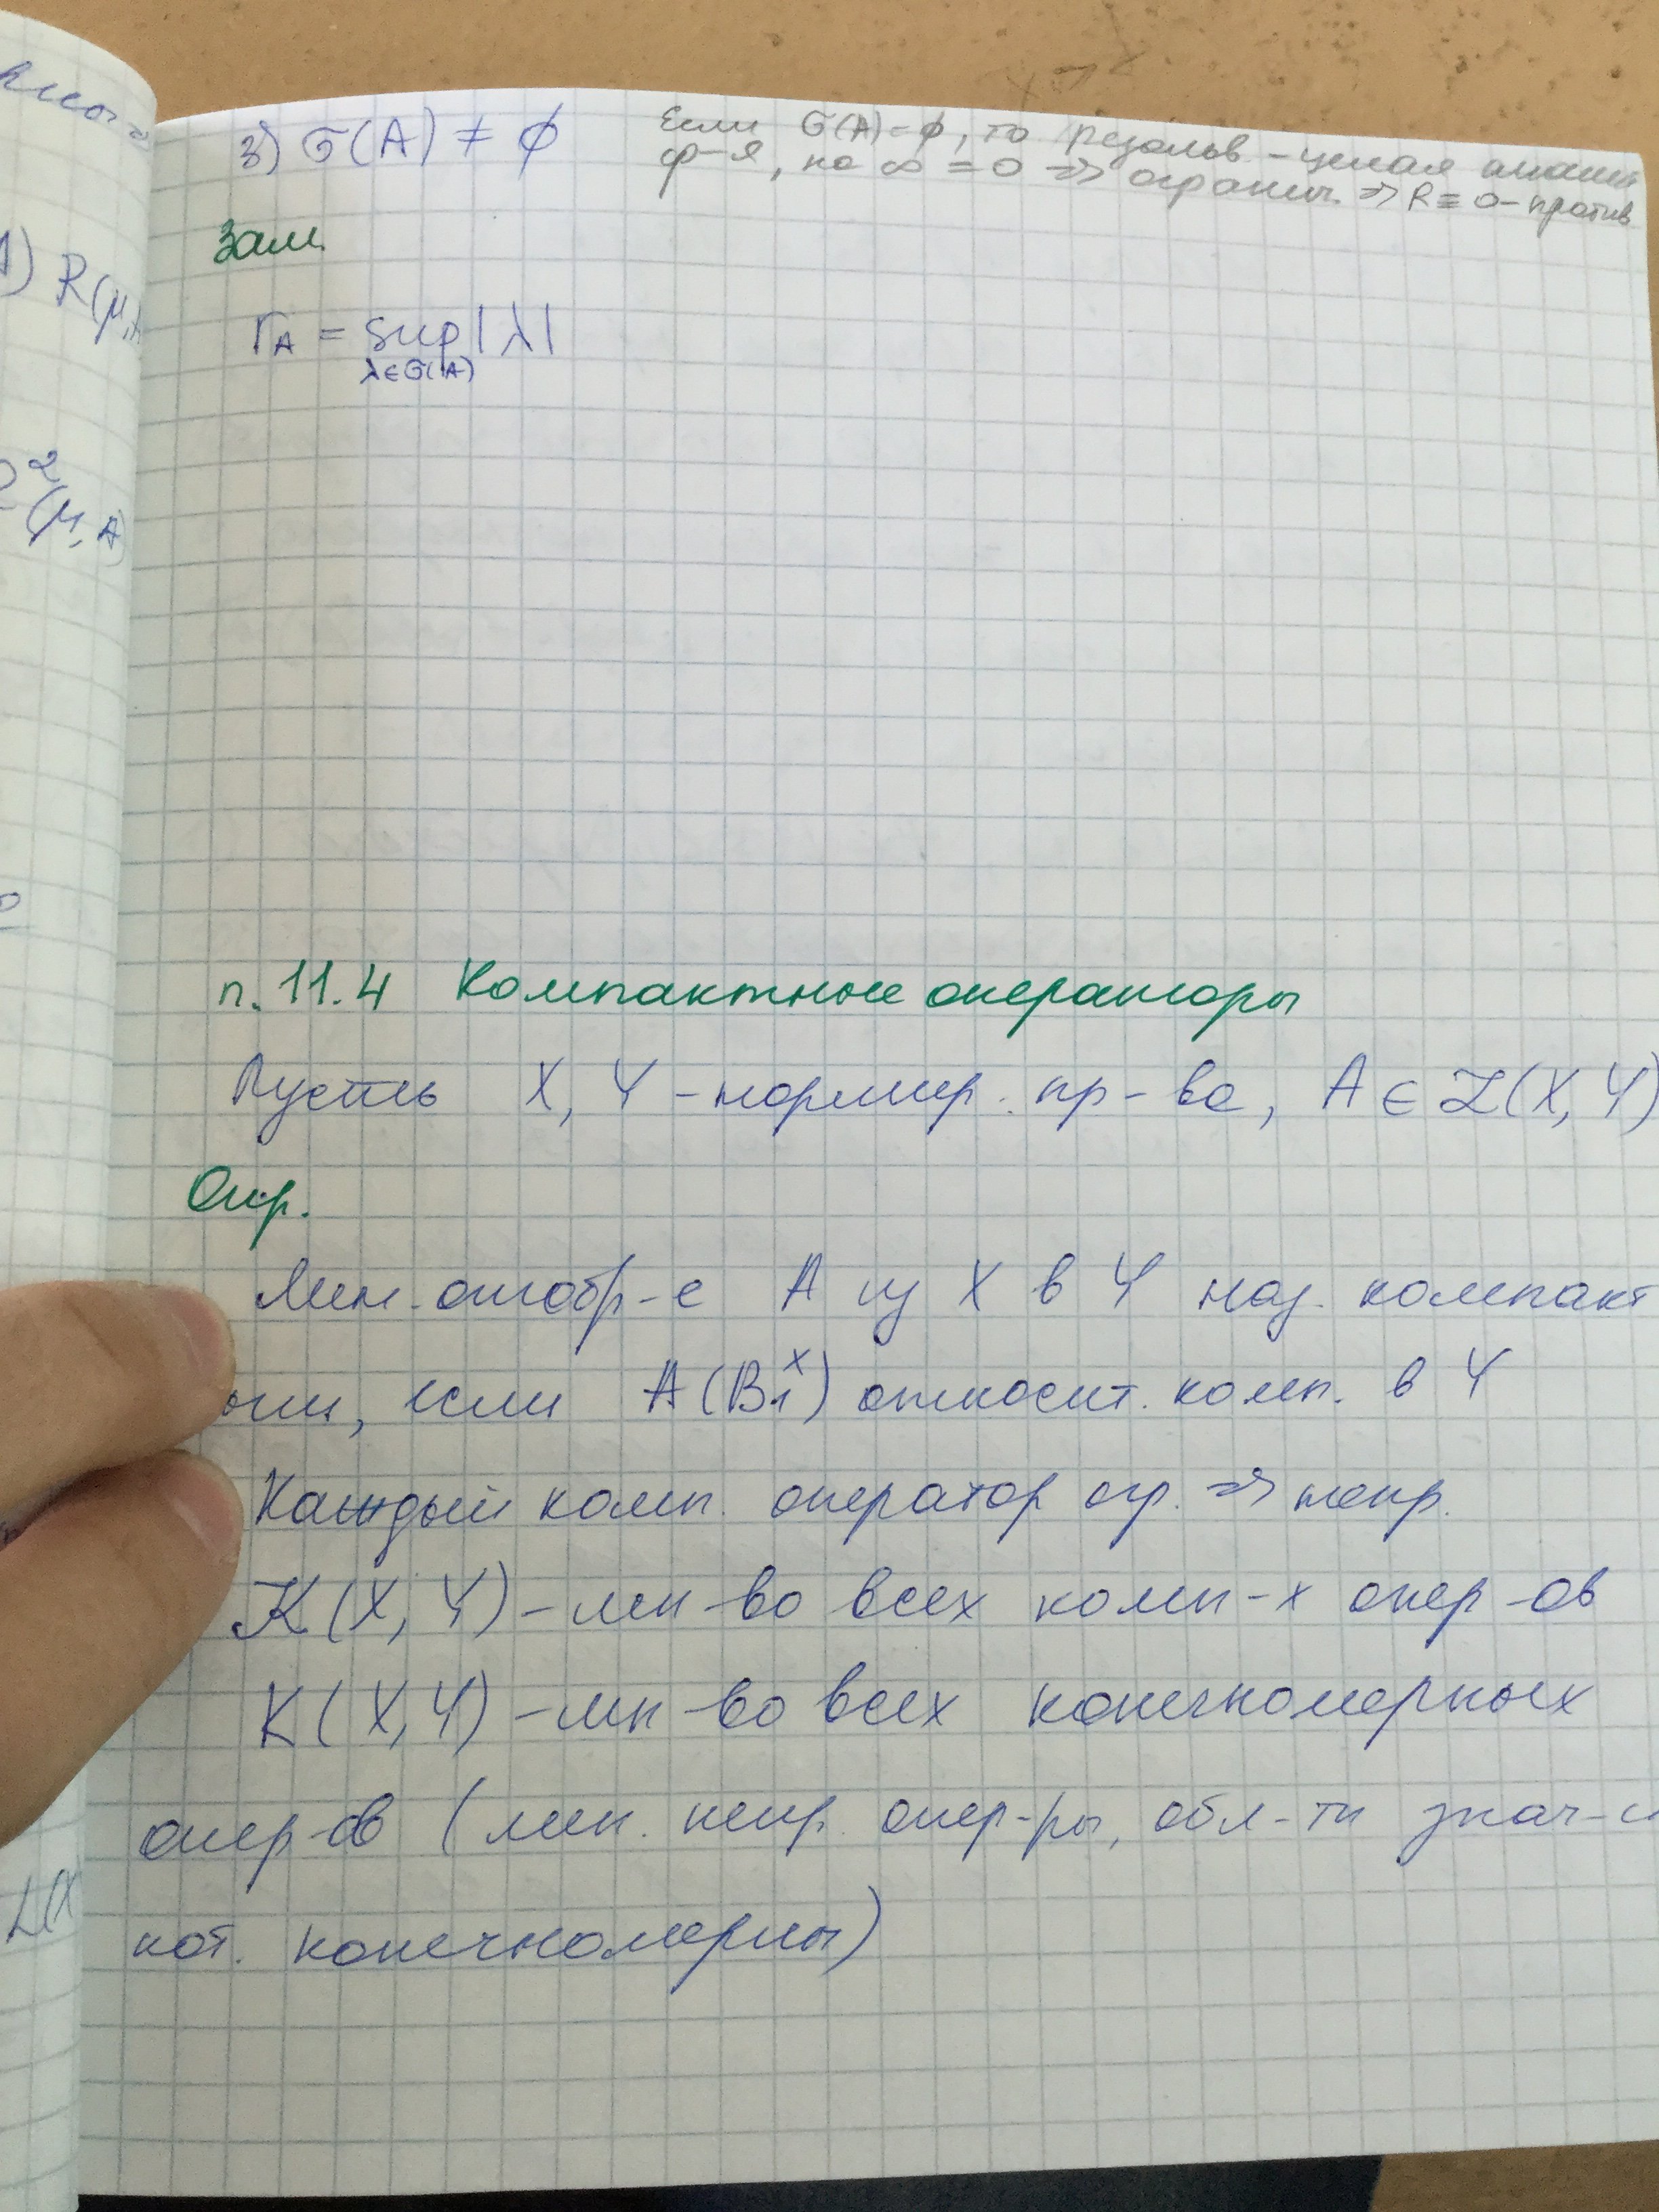 3) σ(A) ≠ ϕ
Если σ(A) = ϕ, то резольв - целая аналит
ф-я, на ∞ = 0 => огранич. => R ≡ 0 - против
Зам.
r_A = sup |λ|
λ∈σ(A)
п. 11.4 Компактные операторы
Пусть X, Y - нормир. пр-ва, A ∈ L(X, Y)
Опр.
Лин. отобр-е A из X в Y наз. компакт
ным, если A(B₁ˣ) относит. комп. в Y
Каждый комп. оператор огр. => непр.
K(X, Y) - мн-во всех комп-х опер-ов
K(X, Y) - мн-во всех конечномерных
опер-ов (лин. непр. опер-ры, обл-ти знач-и
кот. конечномерны)
1) R(μ,
R²(μ, A)
L(X